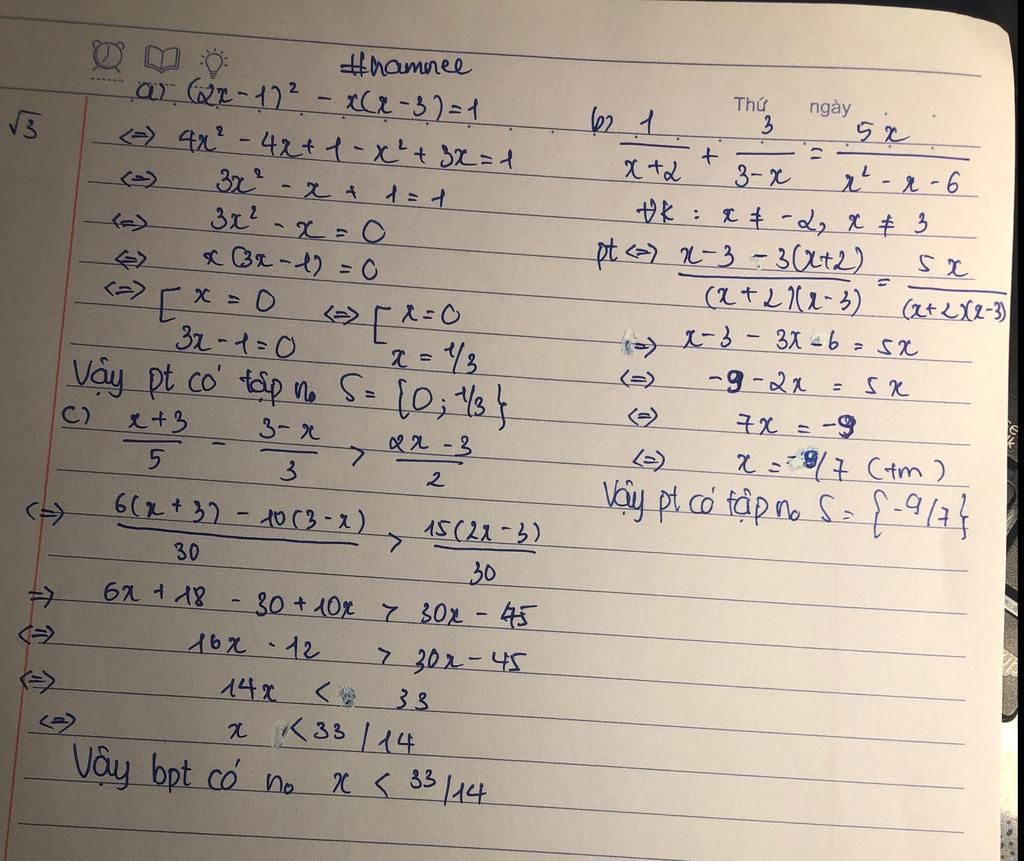 #namnee
√3
a) (2x-1)² - x(x-3)=1
<=> 4x² - 4x+1 - x² + 3x=1
<=> 3x² - x + 1=1
<=> 3x² - x = 0
<=> x(3x-1) = 0
<=> [ x = 0 <=> [ x=0
3x-1=0 x = 1/3
Vậy pt có tập no S = {0; 1/3}
c) (x+3)/5 - (3-x)/3 > (2x-3)/2
<=> (6(x+3) - 10(3-x))/30 > 15(2x-3)/30
=> 6x + 18 - 30 + 10x > 30x - 45
<=> 16x - 12 > 30x - 45
<=> 14x < 33
<=> x < 33/14
Vậy bpt có no x < 33/14
Thứ ngày
b) 1/(x+2) + 3/(3-x) = 5x/(x²-x-6)
đk : x ≠ -2, x ≠ 3
pt <=> (x-3 - 3(x+2))/((x+2)(x-3)) = 5x/((x+2)(x-3))
=> x-3 - 3x-6 = 5x
<=> -9 - 2x = 5x
<=> 7x = -9
<=> x = -9/7 (tm)
Vậy pt có tập no S = {-9/7}